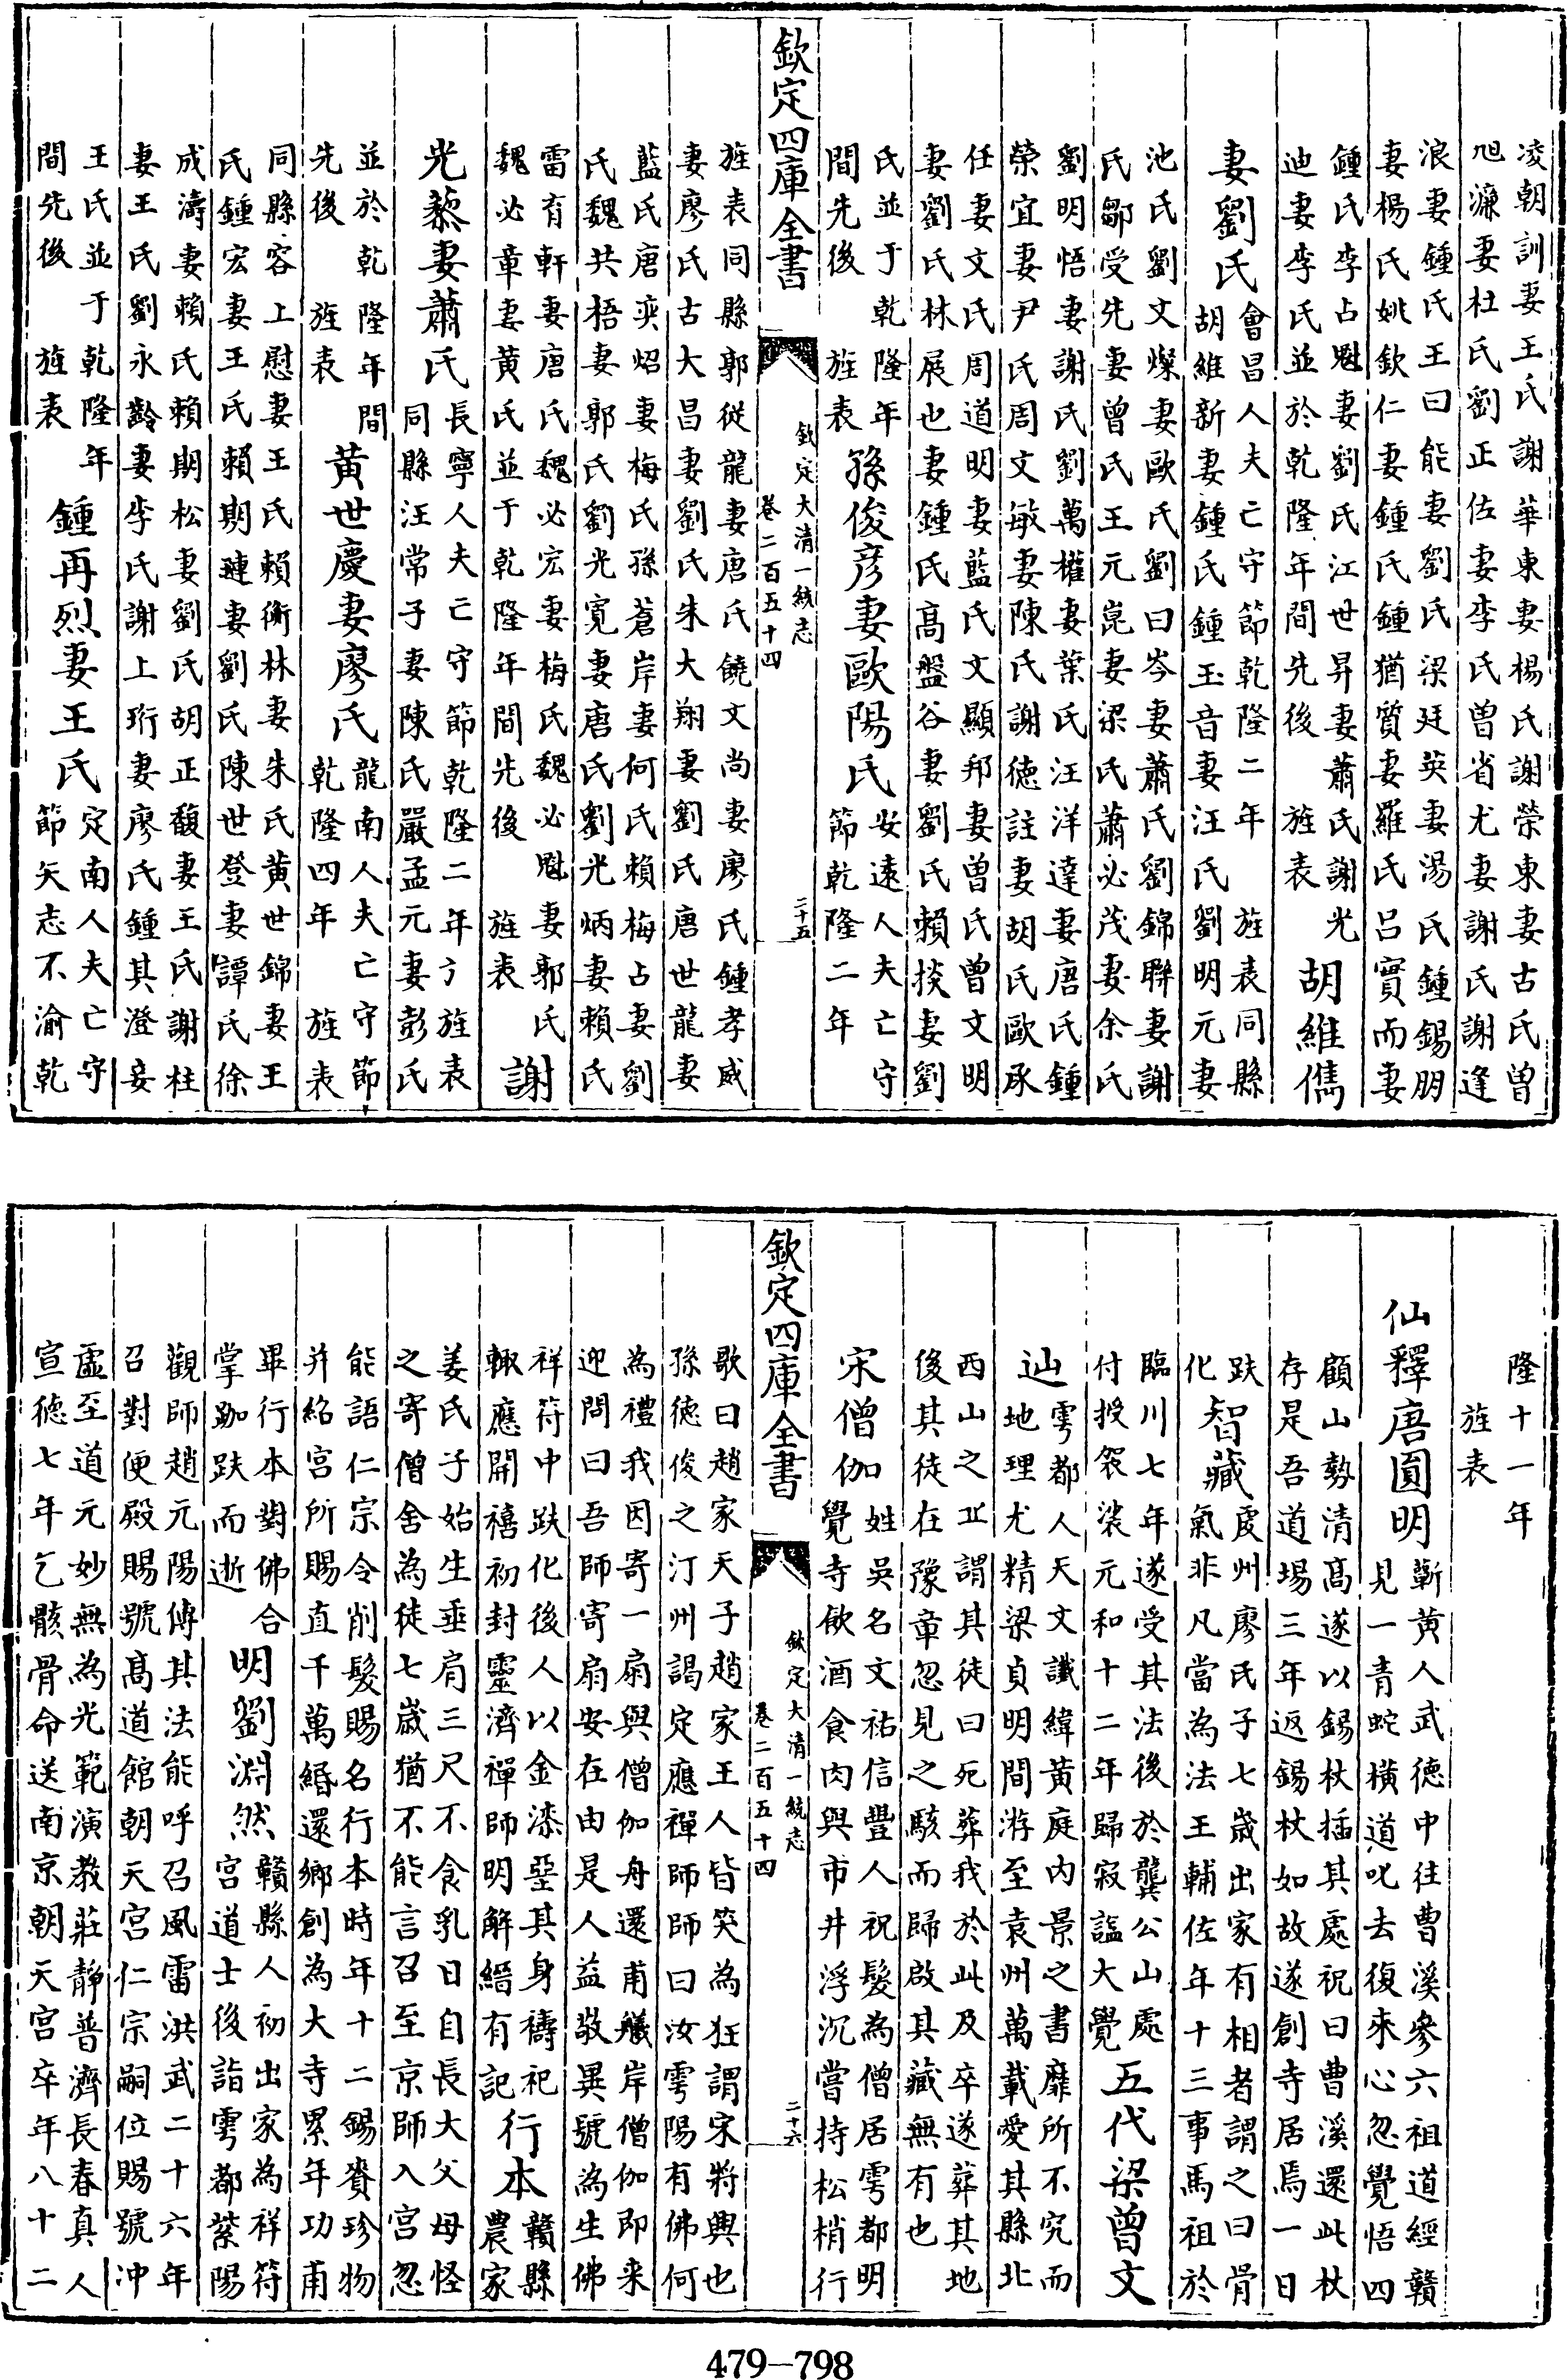 凌朝訓妻王氏謝華東妻楊氏謝榮東妻古氏曾
旭濂妻杜氏劉正佐妻李氏曾省尤妻謝氏謝逢
浪妻鍾氏王曰能妻劉氏梁廷英妻湯氏鍾錫朋
妻楊氏姚欽仁妻鍾氏鍾猶質妻羅氏呂實而妻
鍾氏李占魁妻劉氏江世昇妻蕭氏謝光
迪妻李氏並於乾隆年間先後 旌表
胡維儁
妻劉氏
會昌人夫亡守節乾隆二年 旌表同縣
胡維新妻鍾氏鍾玉音妻汪氏劉明元妻
池氏劉文燦妻歐氏劉曰岑妻蕭氏劉錦聨妻謝
氏鄒受先妻曾氏王元崑妻梁氏蕭必茂妻余氏
劉明悟妻謝氏劉萬權妻葉氏汪洋達妻唐氏鍾
榮宜妻尹氏周文敏妻陳氏謝德註妻胡氏歐承
任妻文氏周道明妻藍氏文顯邦妻曾氏曾文明
妻劉氏林展也妻鍾氏高盤谷妻劉氏賴掞妻劉
氏並于乾隆年
間先後 旌表
孫俊彥妻歐陽氏
安遠人夫亡守
節乾隆二年
欽定四庫全書
欽定大清一統志
卷二百五十四
二十五
旌表同縣郭從龍妻唐氏饒文尚妻廖氏鍾孝威
妻廖氏古大昌妻劉氏朱大翔妻劉氏唐世龍妻
藍氏唐奕炤妻梅氏孫蒼岸妻何氏賴梅占妻劉
氏魏共梧妻郭氏劉光寛妻唐氏劉光炳妻賴氏
雷有軒妻唐氏魏必宏妻梅氏魏必魁妻郭氏
魏必章妻黃氏並于乾隆年間先後 旌表
謝
光藜妻蕭氏
長寧人夫亡守節乾隆二年方旌表
同縣汪常子妻陳氏嚴孟元妻彭氏
並於乾隆年間
先後 旌表
黃世慶妻廖氏
龍南人夫亡守節
乾隆四年 旌表
同縣容上慰妻王氏賴衡林妻朱氏黃世錦妻王
氏鍾宏妻王氏賴期璉妻劉氏陳世登妻譚氏徐
成濤妻賴氏賴期松妻劉氏胡正馥妻王氏謝柱
妻王氏劉永齡妻李氏謝上珩妻廖氏鍾其澄妾
王氏並于乾隆年
間先後 旌表
鍾再烈妻王氏
定南人夫亡守
節矢志不渝乾
隆十一年
旌表
仙釋唐圓明
蘄黃人武德中往曹溪參六祖道經贛
見一青蛇橫道叱去復來心忽覺悟四
顧山勢清高遂以錫杖插其處祝曰曹溪還此杖
存是吾道場三年返錫杖如故遂創寺居焉一日
趺
化
智藏
虔州廖氏子七歲出家有相者謂之曰骨
氣非凡當為法王輔佐年十三事馬祖於
臨川七年遂受其法後於龔公山處
付授袈裟元和十二年歸寂諡大覺
五代梁曾文
辿
雩都人天文讖緯黃庭內景之書靡所不究而
地理尤精梁貞明間游至袁州萬載愛其縣北
西山之丘謂其徒曰死葬我於此及卒遂葬其地
後其徒在豫章忽見之駭而歸啟其藏無有也
宋僧伽
姓吳名文祐信豐人祝髮為僧居雩都明
覺寺飲酒食肉與市井浮沉嘗持松梢行
欽定四庫全書
欽定大清一統志
卷二百五十四
二十六
歌曰趙家天子趙家王人皆笑為狂謂宋將興也
孫德俊之汀州謁定應禪師師曰汝雩陽有佛何
為禮我因寄一扇與僧伽舟還甫艤岸僧伽即來
迎問曰吾師寄扇安在由是人益敬異號為生佛
祥符中趺化後人以金漆堊其身禱祀
輙應開禧初封靈濟禪師明解縉有記
行本
贛縣
農家
姜氏子始生垂肩三尺不食乳日自長大父母怪
之寄僧舍為徒七歲猶不能言召至京師入宮忽
能語仁宗令削髮賜名行本時年十二錫賚珍物
并紿宮所賜直千萬緡還鄉創為大寺累年功甫
畢行本對佛合
掌跏趺而逝
明劉淵然
贛縣人初出家為祥符
宮道士後詣雩都紫陽
觀師趙元陽傳其法能呼召風雷洪武二十六年
召對便殿賜號高道館朝天宮仁宗嗣位賜號沖
虛至道元妙無為光範演教莊靜普濟長春真人
宣德七年乞骸骨命送南京朝天宮卒年八十二
479-798